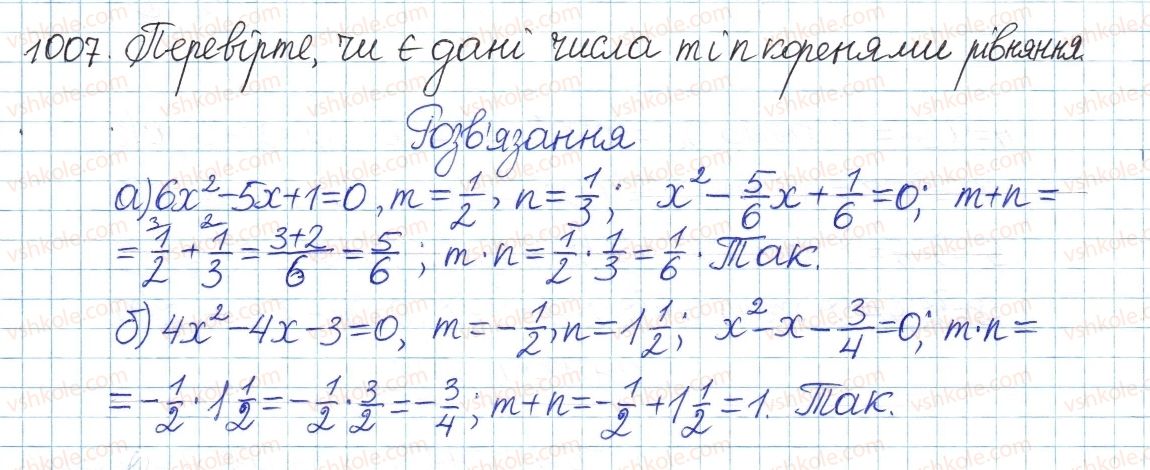 1007. Перевірте, чи є дані числа m і n коренями рівняння.
Розв'язання
а) 6x² - 5x + 1 = 0, m = 1/2, n = 1/3; x² - 5/6 x + 1/6 = 0; m + n =
= ³1/2 + ²1/3 = (3+2)/6 = 5/6; m · n = 1/2 · 1/3 = 1/6. Так.
б) 4x² - 4x - 3 = 0, m = -1/2, n = 1 1/2; x² - x - 3/4 = 0; m · n =
= -1/2 · 1 1/2 = -1/2 · 3/2 = -3/4; m + n = -1/2 + 1 1/2 = 1. Так.